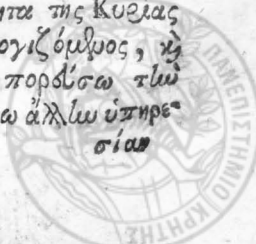 ητα της Κυρίας
ογιζόμενος, καὶ
πορεύσω τὴν
ω ἄλλην ὑπηρε-
σίαν
ΠΑΝΕΠΙΣΤΗΜΙΟ ΚΡΗΤΗΣ